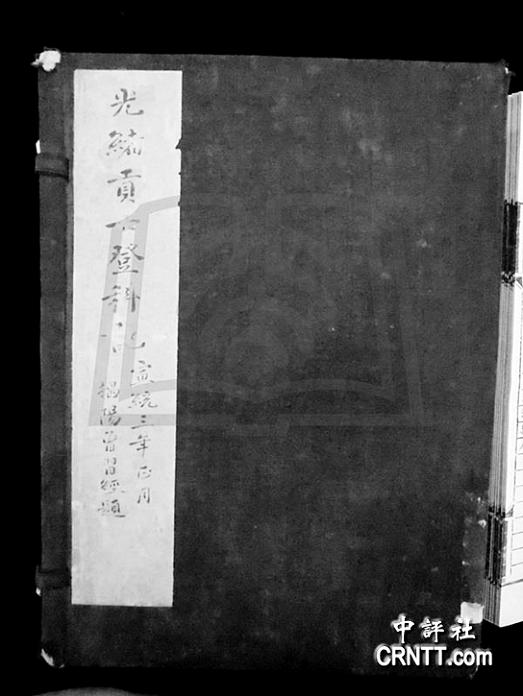 光緒貢士登科記
宣統三年正月
揭陽曾習經題
中評社
CRNTT.com